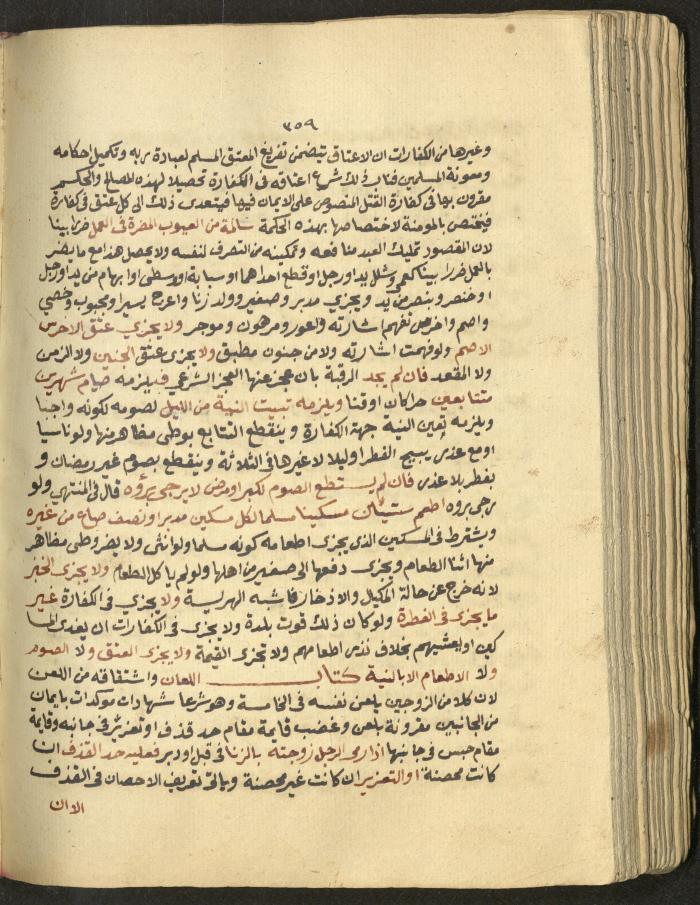 ٣٥٩
وغيرها من الكفارات ان الاعتاق يتضمن تفريغ المعتق المسلم لعبادة ربه وتكميل احكامه
ومعونة المسلمين فناسب ذلك شرع اعتاقه في الكفارة تحصيلا لهذه المصالح والحكم
مقرون بها في كفارة القتل المنصوص على الايمان فيها فيتعدى ذلك الى كل عتق في كفارة
فيختص بالمومنة لاختصاصها بهذه الحكمة سالمة من العيوب المضرة في العمل ضررا بينا
لان المقصود تمليك العبد منافعه وتمكينه من التصرف لنفسه ولا يحصل هذا مع ما يضر
بالعمل ضررا بينا كعمى وشلل يد او رجل او قطع احداهما او سبابة او وسطى او ابهام من يد او رجل
او خنصر وبنصر من يد ويجزي مدبر وصغير وولد زنا واعرج يسيرا ومجبوب وخصي
واصم واخرس تفهم اشارته واعور ومرهون وموجر ولا يجزي عتق الاخرس
الاصم ولو فهمت اشارته ولا من جنون مطبق ولا يجزى عتق الجنين ولا الزمن
ولا المقعد فان لم يجد الرقبة بان عجز عنها العجز الشرعي فيلزمه صيام شهرين
متتابعين حرا كان او قنا ويلزمه تبييت النية من الليل لصومه لكونه واجبا
ويلزمه تعين النية جهة الكفارة وينقطع التتابع بوطى مظاهر منها ولو ناسيا
او مع عذر يبيح الفطر او ليلا لا غيرها في الثلاثة وينقطع بصوم غير رمضان و
بفطر بلا عذر فان لم يستطع الصوم لكبر او مرض لا يرجى برؤه قال في المنتهى ولو
رجي بروه اطعم ستين مسكينا مسلما لكل مسكين مد بر او نصف صاع من غيره
ويشترط في المسكين الذي يجزى اطعامه كونه مسلما ولو انثى ولا يضر وطى مظاهر
منها اثنا الطعام ويجزى دفعها الى صغير من اهلها ولو لم ياكل الطعام ولا يجزى الخبز
لانه خرج عن حالة المكيل والادخار فاشبه الهريسة ولا يجزي في الكفارة غير
ما يجزى في الفطرة ولو كان ذلك قوت بلدة ولا يجزى في الكفارات ان يغدى المسا
كين او يعشيهم بخلاف نذر اطعامهم ولا تجزى القيمة ولا يجزى العتق ولا الصوم
ولا الاطعام الا بالنية كتاب اللعان واشتقاقه من اللعن
لان كلا من الزوجين يلعن نفسه في الخامسة وهو شرعا شهادات موكدات بايمان
من الجانبين مقرونة بلعن وغضب قايمة مقام حد قذف او تعزير في جانبه وقايمة
مقام حبس في جانبها اذا رمى الرجل زوجته بالزنا في قبل او دبر فعليه حد القذف ان
كانت محصنة او التعزير ان كانت غير محصنة وياتى تعريف الاحصان في القذف
الا ان